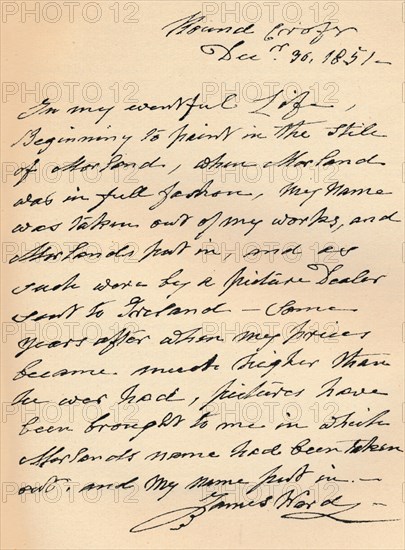 Round Croft
Decr. 30, 1851-
In my eventful Life,
Beginning to paint in the Stile
of Morland, when Morland
was in full fashon, my name
was taken out of my works, and
Morlands put in, and as
such were by a picture Dealer
sent to Ireland - Some
years after when my prices
became much higher than
he ever had, pictures have
been brought to me in which
Morlands name had been taken
out, and my name put in. -
James Ward -
PHOTO12